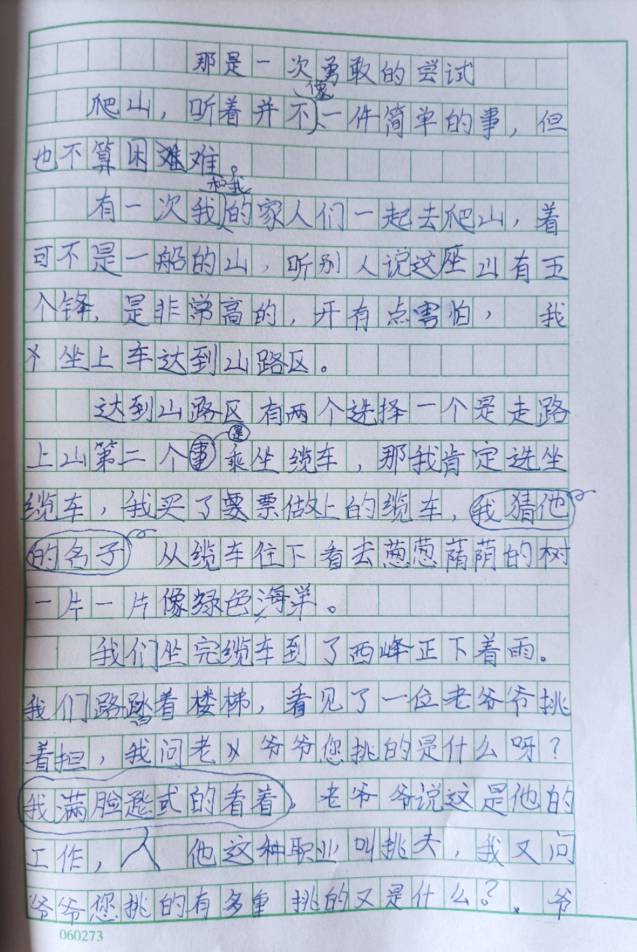 那是一次勇敢的尝试
爬山，听着并不像一件简单的事，但
也不算困难。
有一次我和我的家人们一起去爬山，着
可不是一船的山，听别人说这座山有五
个锋，是非常高的，开有点害怕，我
坐上车达到山路区。
达到山路区有两个选择一个是走路
上山第二个是乘坐缆车，那我肯定选坐
缆车，我买了票做上的缆车，我猜他
的名子 从缆车往下看去葱葱荫荫的树
一片一片像绿色海洋。
我们坐完缆车到了西峰正下着雨。
我们路踏着楼梯，看见了一位老爷爷挑
着担，我问老爷爷您挑的是什么呀？
我满脸的看着，老爷爷说这是他的
工作，他这种职业叫挑夫，我又问
爷爷您挑的有多重挑的又是什么？爷
060273